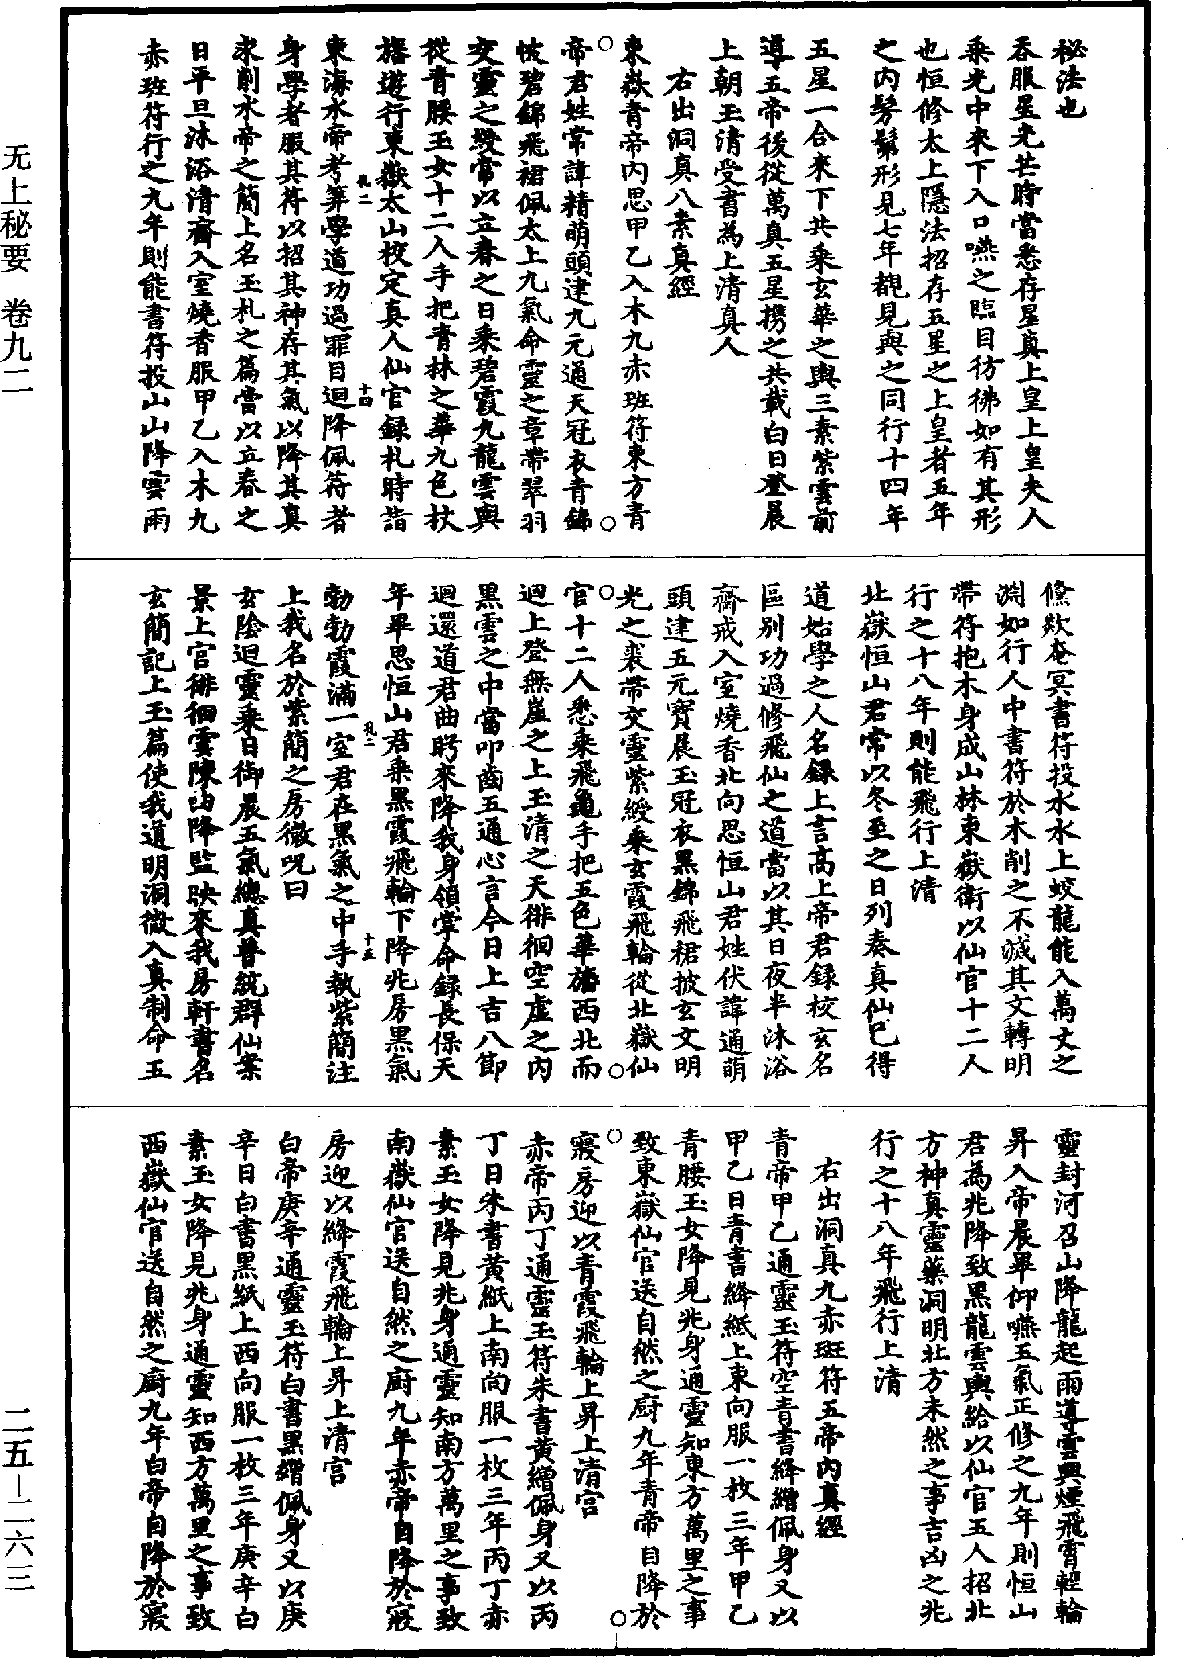 无上秘要 卷九二
二五—二六三
秘法也
吞服星光芒時當悉存星真上皇上皇夫人
乘光中來下入口嚥之臨目彷彿如有其形
也恒修太上隱法招存五星之上皇者五年
之內髣髴形見七年都見與之同行十四年
五星一合來下共乘玄華之輿三素紫雲前
導五帝後從萬真五星携之共載白日登晨
上朝玉清受書為上清真人
右出洞真八素真經
東嶽青帝內思甲乙入木九赤班符東方青
帝君姓常諱精萌頭建九元通天冠衣青錦
帔碧錦飛裙佩太上九氣命靈之章帶翠羽
交靈之綬常以立春之日乘碧霞九龍雲輿
從青腰玉女十二人手把青林之華九色杖
旛遊行東嶽太山校定真人仙官錄札時詣
東海水帝考筭學道功過罪目迴降佩符者
身學者服其符以招其神存其氣以降其真
求削水帝之簡上名玉札之篇當以立春之
日平旦沐浴清齋入室燒香服甲乙入木九
赤班符行之九年則能書符投山山降雲雨
儵欻奄冥書符投水水上蛟龍能入萬丈之
淵如行人中書符於木削之不滅其文轉明
帶符抱木身成山林東嶽衛以仙官十二人
行之十八年則能飛行上清
北嶽恒山君常以冬至之日列奏真仙已得
道始學之人名錄上言高上帝君錄校玄名
區別功過修飛仙之道當以其日夜半沐浴
齋戒入室燒香北向思恒山君姓伏諱通萌
頭建五元寶晨玉冠衣黑錦飛裙披玄文明
光之裘帶交靈紫綬乘玄霞飛輪從北嶽仙
官十二人悉乘飛龜手把五色華旛西北而
迴上登無崖之上玉清之天徘徊空虛之內
黑雲之中當叩齒五通心言今日上吉八節
迴還道君曲眄來降我身領掌命錄長保天
年畢思恒山君乘黑霞飛輪下降兆房黑氣
勃勃霞滿一室君在黑氣之中手執紫簡注
上我名於紫簡之房微呪曰
玄陰迴靈乘日御晨五氣總真普統群仙案
景上官徘徊雲陳出降監映來我房軒書名
玄簡記上玉篇使我通明洞微入真制命五
靈封河召山降龍起雨導雲興煙飛霄輕輪
昇入帝晨畢仰嚥五氣正修之九年則恒山
君為兆降致黑龍雲輿給以仙官五人招北
方神真靈藥洞明北方未然之事吉凶之兆
行之十八年飛行上清
右出洞真九赤班符五帝內真經
青帝甲乙通靈玉符空青書絳繒佩身又以
甲乙日青書絳紙上東向服一枚三年甲乙
青腰玉女降見兆身通靈知東方萬里之事
致東嶽仙官送自然之厨九年青帝目降於
寢房迎以青霞飛輪上昇上清宮
赤帝丙丁通靈玉符朱書黄繒佩身又以丙
丁日朱書黄紙上南向服一枚三年丙丁赤
素玉女降見兆身通靈知南方萬里之事致
南嶽仙官送自然之厨九年赤帝自降於寢
房迎以絳霞飛輪上昇上清宮
白帝庚辛通靈玉符白書黑繒佩身又以庚
辛日白書黑紙上西向服一枚三年庚辛白
素玉女降見兆身通靈知西方萬里之事致
西嶽仙官送自然之厨九年白帝自降於寢